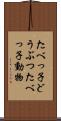 たべっ子ど
うぶつたべ
っ子動物